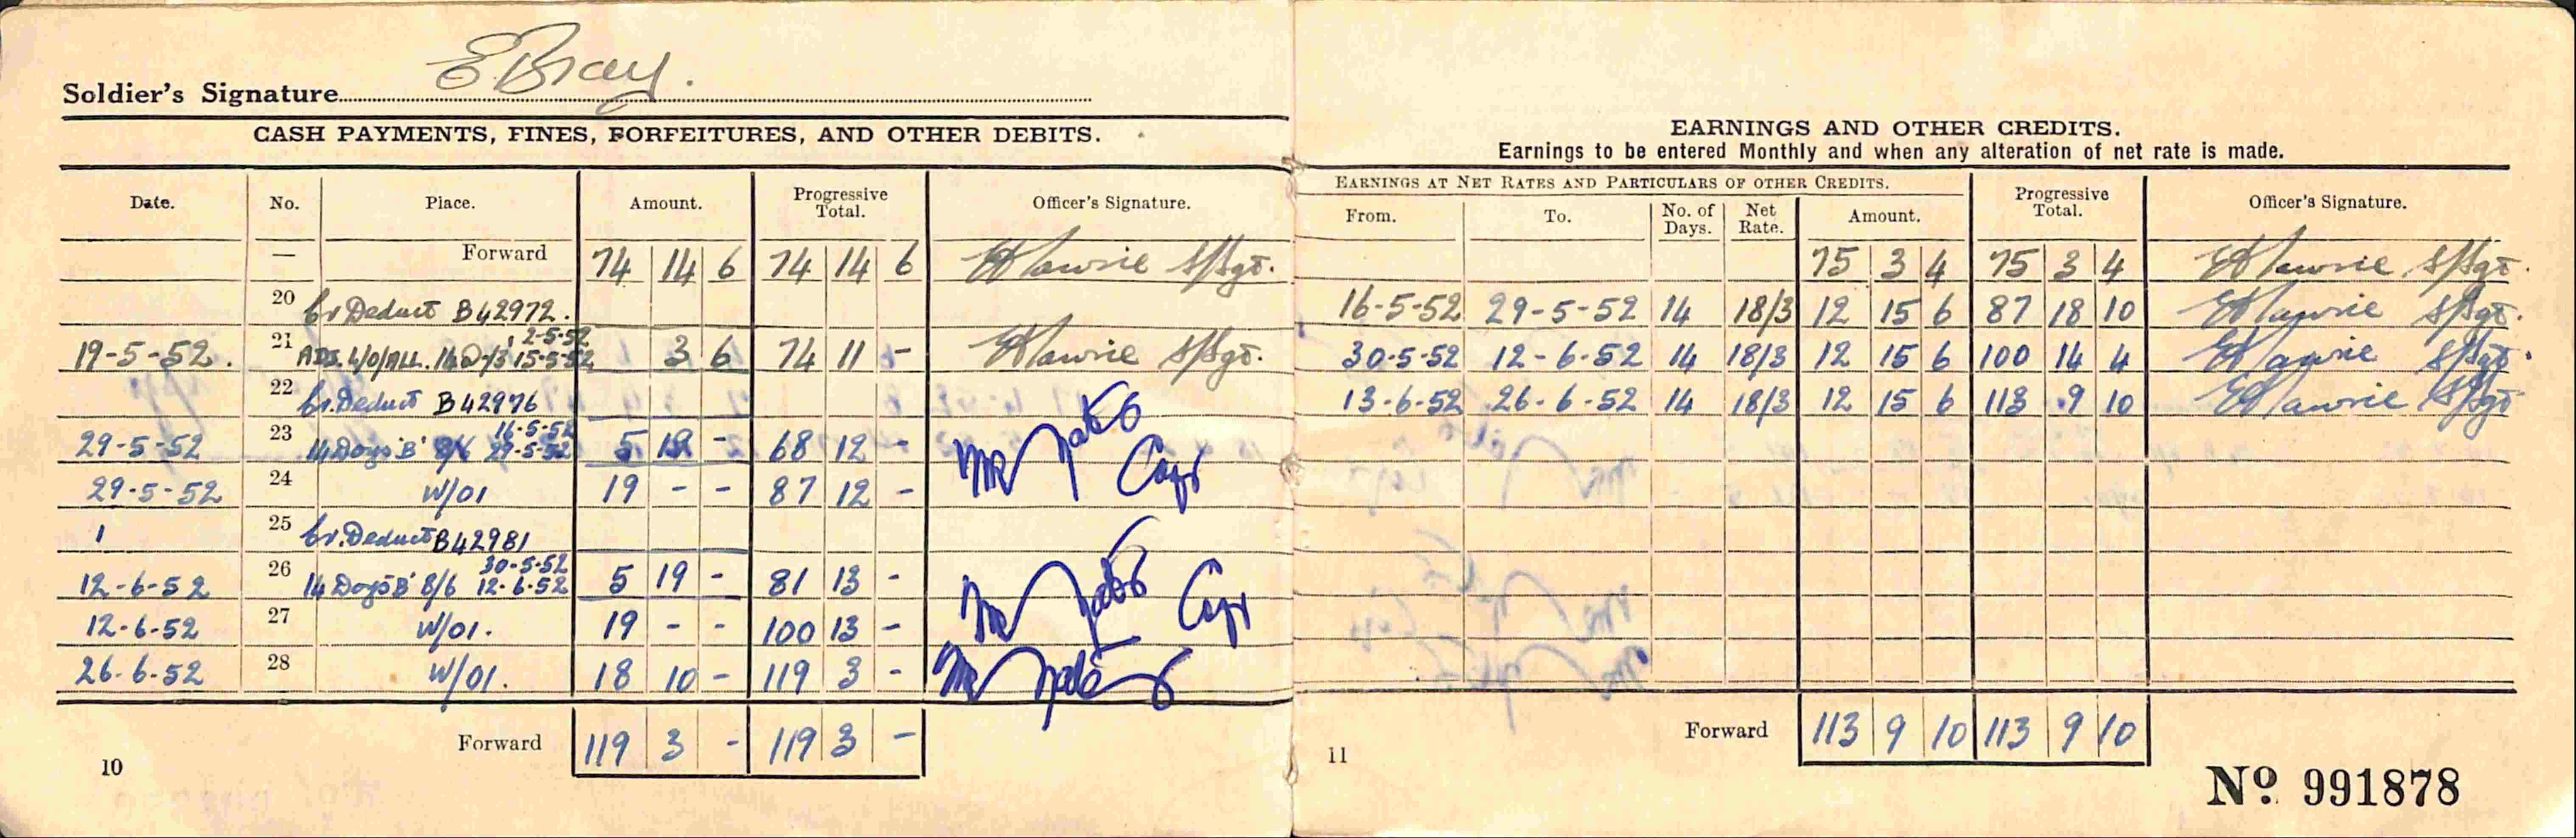 Soldier's Signature E Bray.
CASH PAYMENTS, FINES, FORFEITURES, AND OTHER DEBITS.
Date. No. Place. Amount. Progressive Total. Officer's Signature.
— Forward 74 14 6 74 14 6 S/Sgt.
20 Cr. Deduct B42972.
2-5-52
19-5-52. 21 ADJ. L/O/ALL. 14 @ -/3 15-5-52 3 6 74 11 -
S/Sgt.
22 Cr. Deduct B42976
16-5-52
29-5-52 23 14 Days 'B' 8/6 29-5-52 5 19 - 68 12 -
Capt
29-5-52 24 W/01 19 - - 87 12 -
1 25 Cr. Deduct B42981
30-5-52
12-6-52 26 14 Days 'B' 8/6 12-6-52 5 19 - 81 13 -
Capt
12-6-52 27 W/01. 19 - - 100 13 -
26-6-52 28 W/01. 18 10 - 119 3 -
Forward 119 3 - 119 3 -
10
EARNINGS AND OTHER CREDITS.
Earnings to be entered Monthly and when any alteration of net rate is made.
EARNINGS AT NET RATES AND PARTICULARS OF OTHER CREDITS.
From. To. No. of Days. Net Rate. Amount. Progressive Total. Officer's Signature.
75 3 4 75 3 4 S/Sgt.
16-5-52 29-5-52 14 18/3 12 15 6 87 18 10 S/Sgt.
30-5-52 12-6-52 14 18/3 12 15 6 100 14 4 S/Sgt.
13-6-52 26-6-52 14 18/3 12 15 6 113 9 10 S/Sgt
Forward 113 9 10 113 9 10
11
Nº 991878